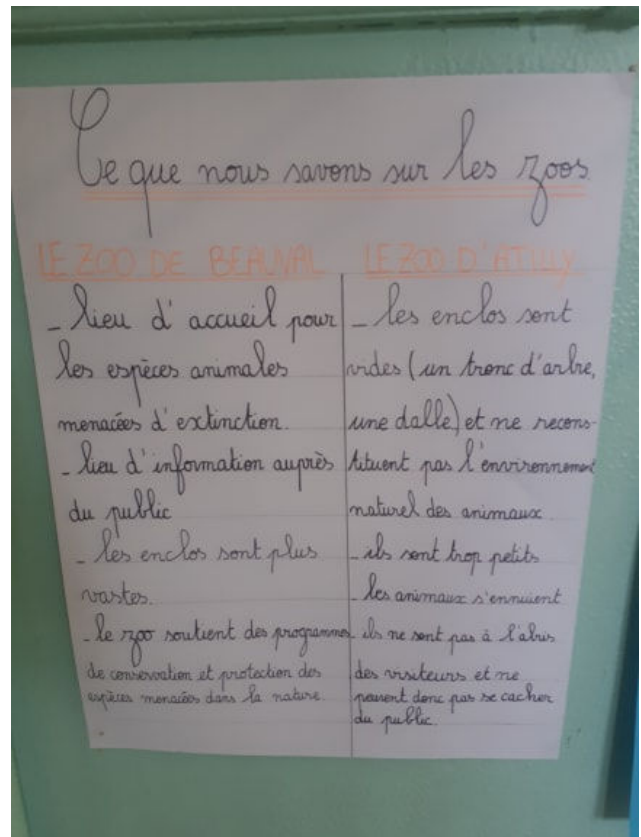 Ce que nous savons sur les zoos
LE ZOO DE BEAUVAL
- lieu d'accueil pour
les espèces animales
menacées d'extinction.
- lieu d'information auprès
du public
- les enclos sont plus
vastes.
- le zoo soutient des programmes
de conservation et protection des
espèces menacées dans la nature.
LE ZOO D'ATILLY
- les enclos sont
vides (un tronc d'arbre,
une dalle) et ne recons-
tituent pas l'environnement
naturel des animaux
- ils sont trop petits
- les animaux s'ennuient
- ils ne sont pas à l'abris
des visiteurs et ne
peuvent donc pas se cacher
du public.